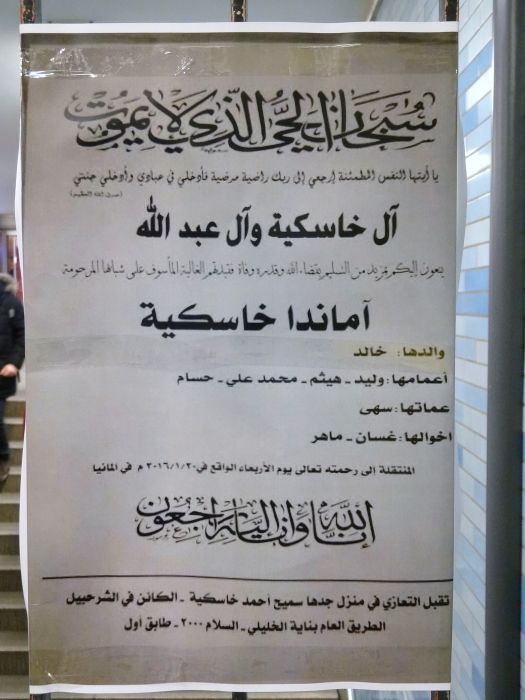 سبحان الحي الذي لا يموت
يا أيتها النفس المطمئنة إرجعي إلى ربك راضية مرضية فأدخلي في عبادي وأدخلي جنتي
(صدق الله العظيم)
آل خاسكية وآل عبد الله
ينعون إليكم بمزيد من التسليم بقضاء الله وقدره وفاة فقيدتهم الغالية المأسوف على شبابها المرحومة
آماندا خاسكية
والدها: خالد
أعمامها: وليد - هيثم - محمد علي - حسام
عماتها: سهى
اخوالها: غسان - ماهر
المنتقلة إلى رحمته تعالى يوم الأربعاء الواقع في ٢٠١٦/١/٢٠ م في المانيا
إنا لله وإنا إليه راجعون
تقبل التعازي في منزل جدها سميح أحمد خاسكية - الكائن في الشرحبيل
الطريق العام بناية الخليلي - السلام ٢٠٠٠ - طابق أول